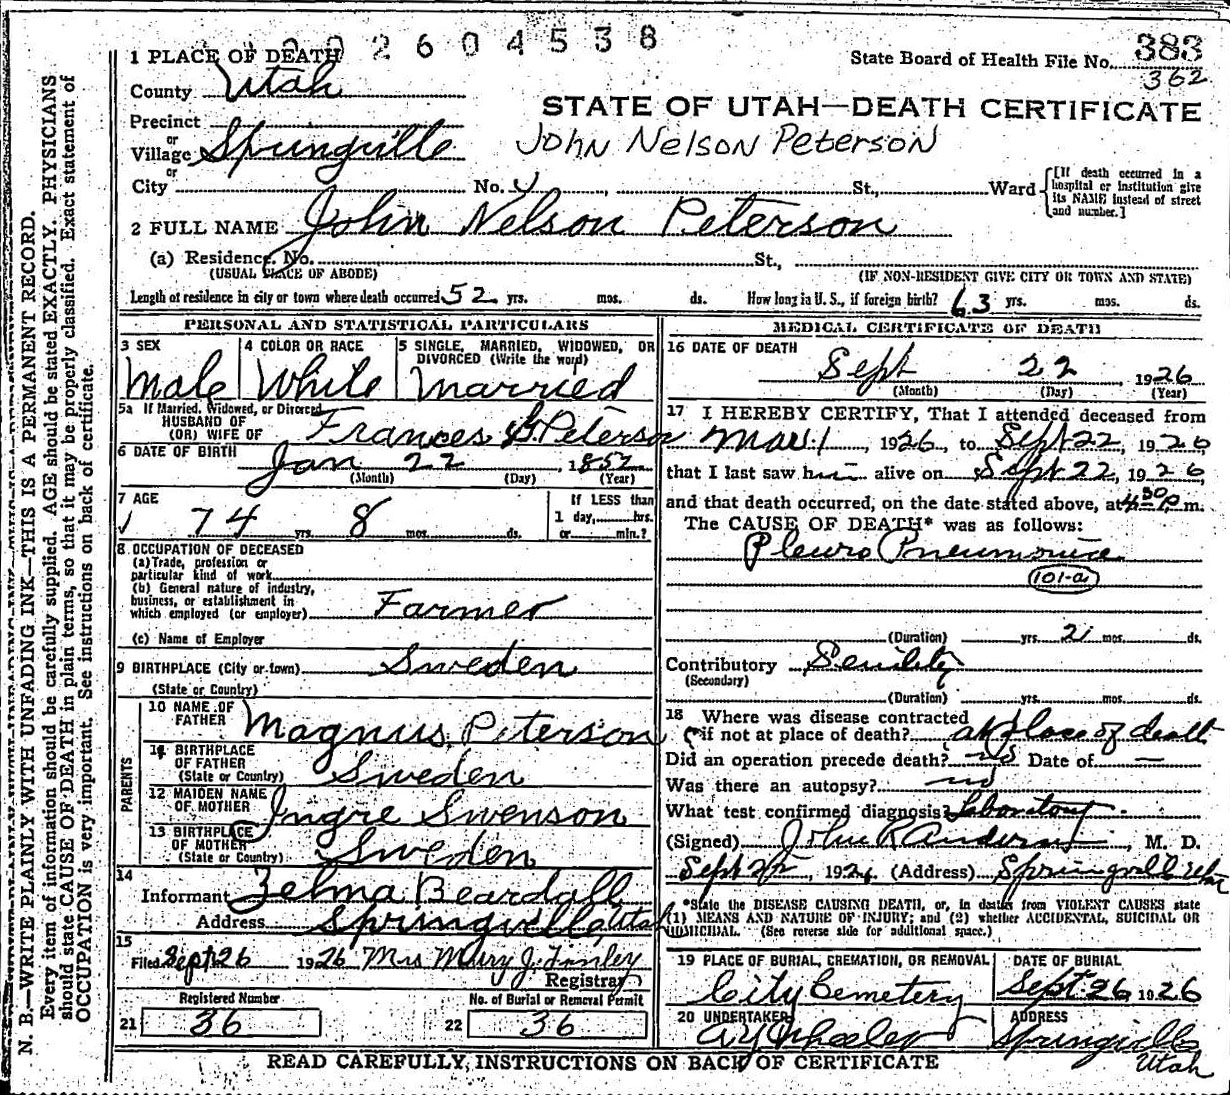 2604538
1 PLACE OF DEATH
State Board of Health File No. 383
362
County Utah
STATE OF UTAH—DEATH CERTIFICATE
Precinct
or
Village Springville
John Nelson Peterson
or
City No. St., Ward
[If death occurred in a hospital or institution give its NAME instead of street and number.]
2 FULL NAME John Nelson Peterson
(a) Residence. No. St.,
(USUAL PLACE OF ABODE) (IF NON-RESIDENT GIVE CITY OR TOWN AND STATE)
Length of residence in city or town where death occurred 52 yrs. mos. ds. How long in U. S., if foreign birth? 63 yrs. mos. ds.
PERSONAL AND STATISTICAL PARTICULARS
3 SEX 4 COLOR OR RACE 5 SINGLE, MARRIED, WIDOWED, OR
DIVORCED (Write the word)
Male White Married
5a If Married, Widowed, or Divorced
HUSBAND OF
(OR) WIFE OF Frances Peterson
6 DATE OF BIRTH Jan 22, 1852
(Month) (Day) (Year)
7 AGE If LESS than
1 day, hrs.
74 yrs. 8 mos. ds. or min.?
8 OCCUPATION OF DECEASED
(a) Trade, profession or
particular kind of work
(b) General nature of industry,
business, or establishment in
which employed (or employer) Farmer
(c) Name of Employer
9 BIRTHPLACE (City or town) Sweden
(State or Country)
PARENTS
10 NAME OF
FATHER Magnus Peterson
11 BIRTHPLACE
OF FATHER
(State or Country) Sweden
12 MAIDEN NAME
OF MOTHER Ingre Swenson
13 BIRTHPLACE
OF MOTHER
(State or Country) Sweden
14
Informant Zelma Beardall
Address Springville, Utah
15
Filed Sept 26 1926 Mrs Mary J. Finley
Registrar
Registered Number No. of Burial or Removal Permit
21 36 22 36
MEDICAL CERTIFICATE OF DEATH
16 DATE OF DEATH
Sept 22, 1926
(Month) (Day) (Year)
17 I HEREBY CERTIFY, That I attended deceased from
Mar 1, 1926 to Sept 22, 1926
that I last saw him alive on Sept 22, 1926,
and that death occurred, on the date stated above, at 4:30 p m.
The CAUSE OF DEATH* was as follows:
Pleuro Pneumonia
101-a
(Duration) yrs. mos. ds.
Contributory Senility
(Secondary)
(Duration) yrs. mos. ds.
18 Where was disease contracted
if not at place of death? at place of death
Did an operation precede death? no Date of —
Was there an autopsy? no
What test confirmed diagnosis? Laboratory
(Signed) John R Anderson, M. D.
Sept, 1926 (Address) Springville Utah
*State the DISEASE CAUSING DEATH, or, in deaths from VIOLENT CAUSES state
(1) MEANS AND NATURE OF INJURY; and (2) whether ACCIDENTAL, SUICIDAL OR
HOMICIDAL. (See reverse side for additional space.)
19 PLACE OF BURIAL, CREMATION, OR REMOVAL DATE OF BURIAL
City Cemetery Sept. 26 1926
20 UNDERTAKER ADDRESS
A Y Wheeler Springville
Utah
READ CAREFULLY, INSTRUCTIONS ON BACK OF CERTIFICATE
N. B.—WRITE PLAINLY WITH UNFADING INK—THIS IS A PERMANENT RECORD.
Every item of information should be carefully supplied. AGE should be stated EXACTLY. PHYSICIANS
should state CAUSE OF DEATH in plain terms, so that it may be properly classified. Exact statement of
OCCUPATION is very important. See instructions on back of certificate.